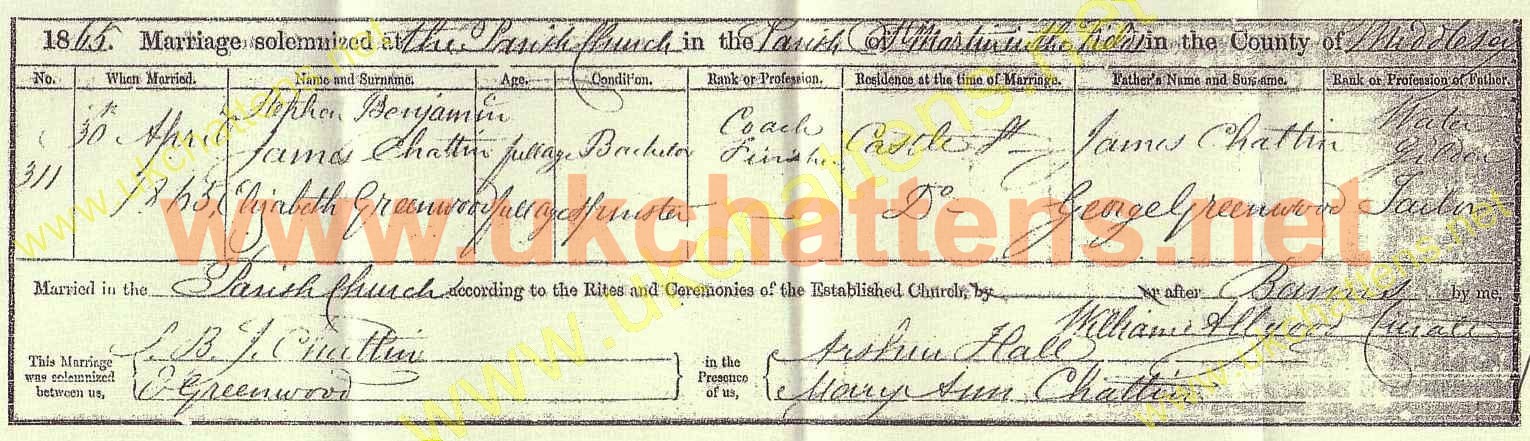 1865. Marriage solemnized at the Parish Church in the Parish of St Martin in the Fields in the County of Middlesex
No. When Married. Name and Surname. Age. Condition. Rank or Profession. Residence at the time of Marriage. Father's Name and Surname. Rank or Profession of Father.
311 30th April 1865, Stephen Benjamin James Chattin full age Bachelor Coach Finisher Castle St James Chattin Water Gilder
Elizabeth Greenwood full age Spinster — Do George Greenwood Tailor
Married in the Parish Church according to the Rites and Ceremonies of the Established Church, by or after Banns by me,
William Allwood Curate
This Marriage was solemnized between us, S. B. J. Chattin in the Presence of us, Arthur Hall
E Greenwood Mary Ann Chattin
www.ukchattens.net
www.ukchattens.net
www.ukchattens.net
www.ukchattens.net